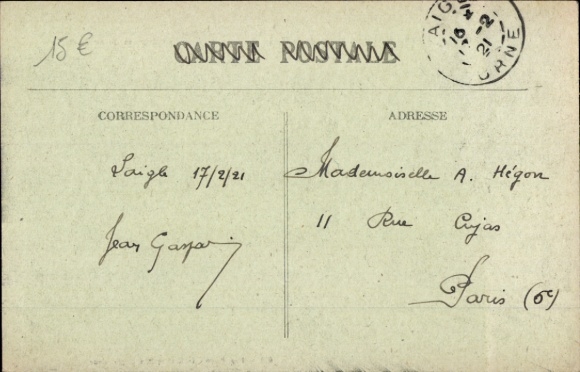 15 €
CARTE POSTALE
AIG
16
-2
21
ORNE
CORRESPONDANCE
ADRESSE
Laigle 17/2/21
Jean Gaspari
Mademoiselle A. Hégon
11 Rue Cujas
Paris (6e)